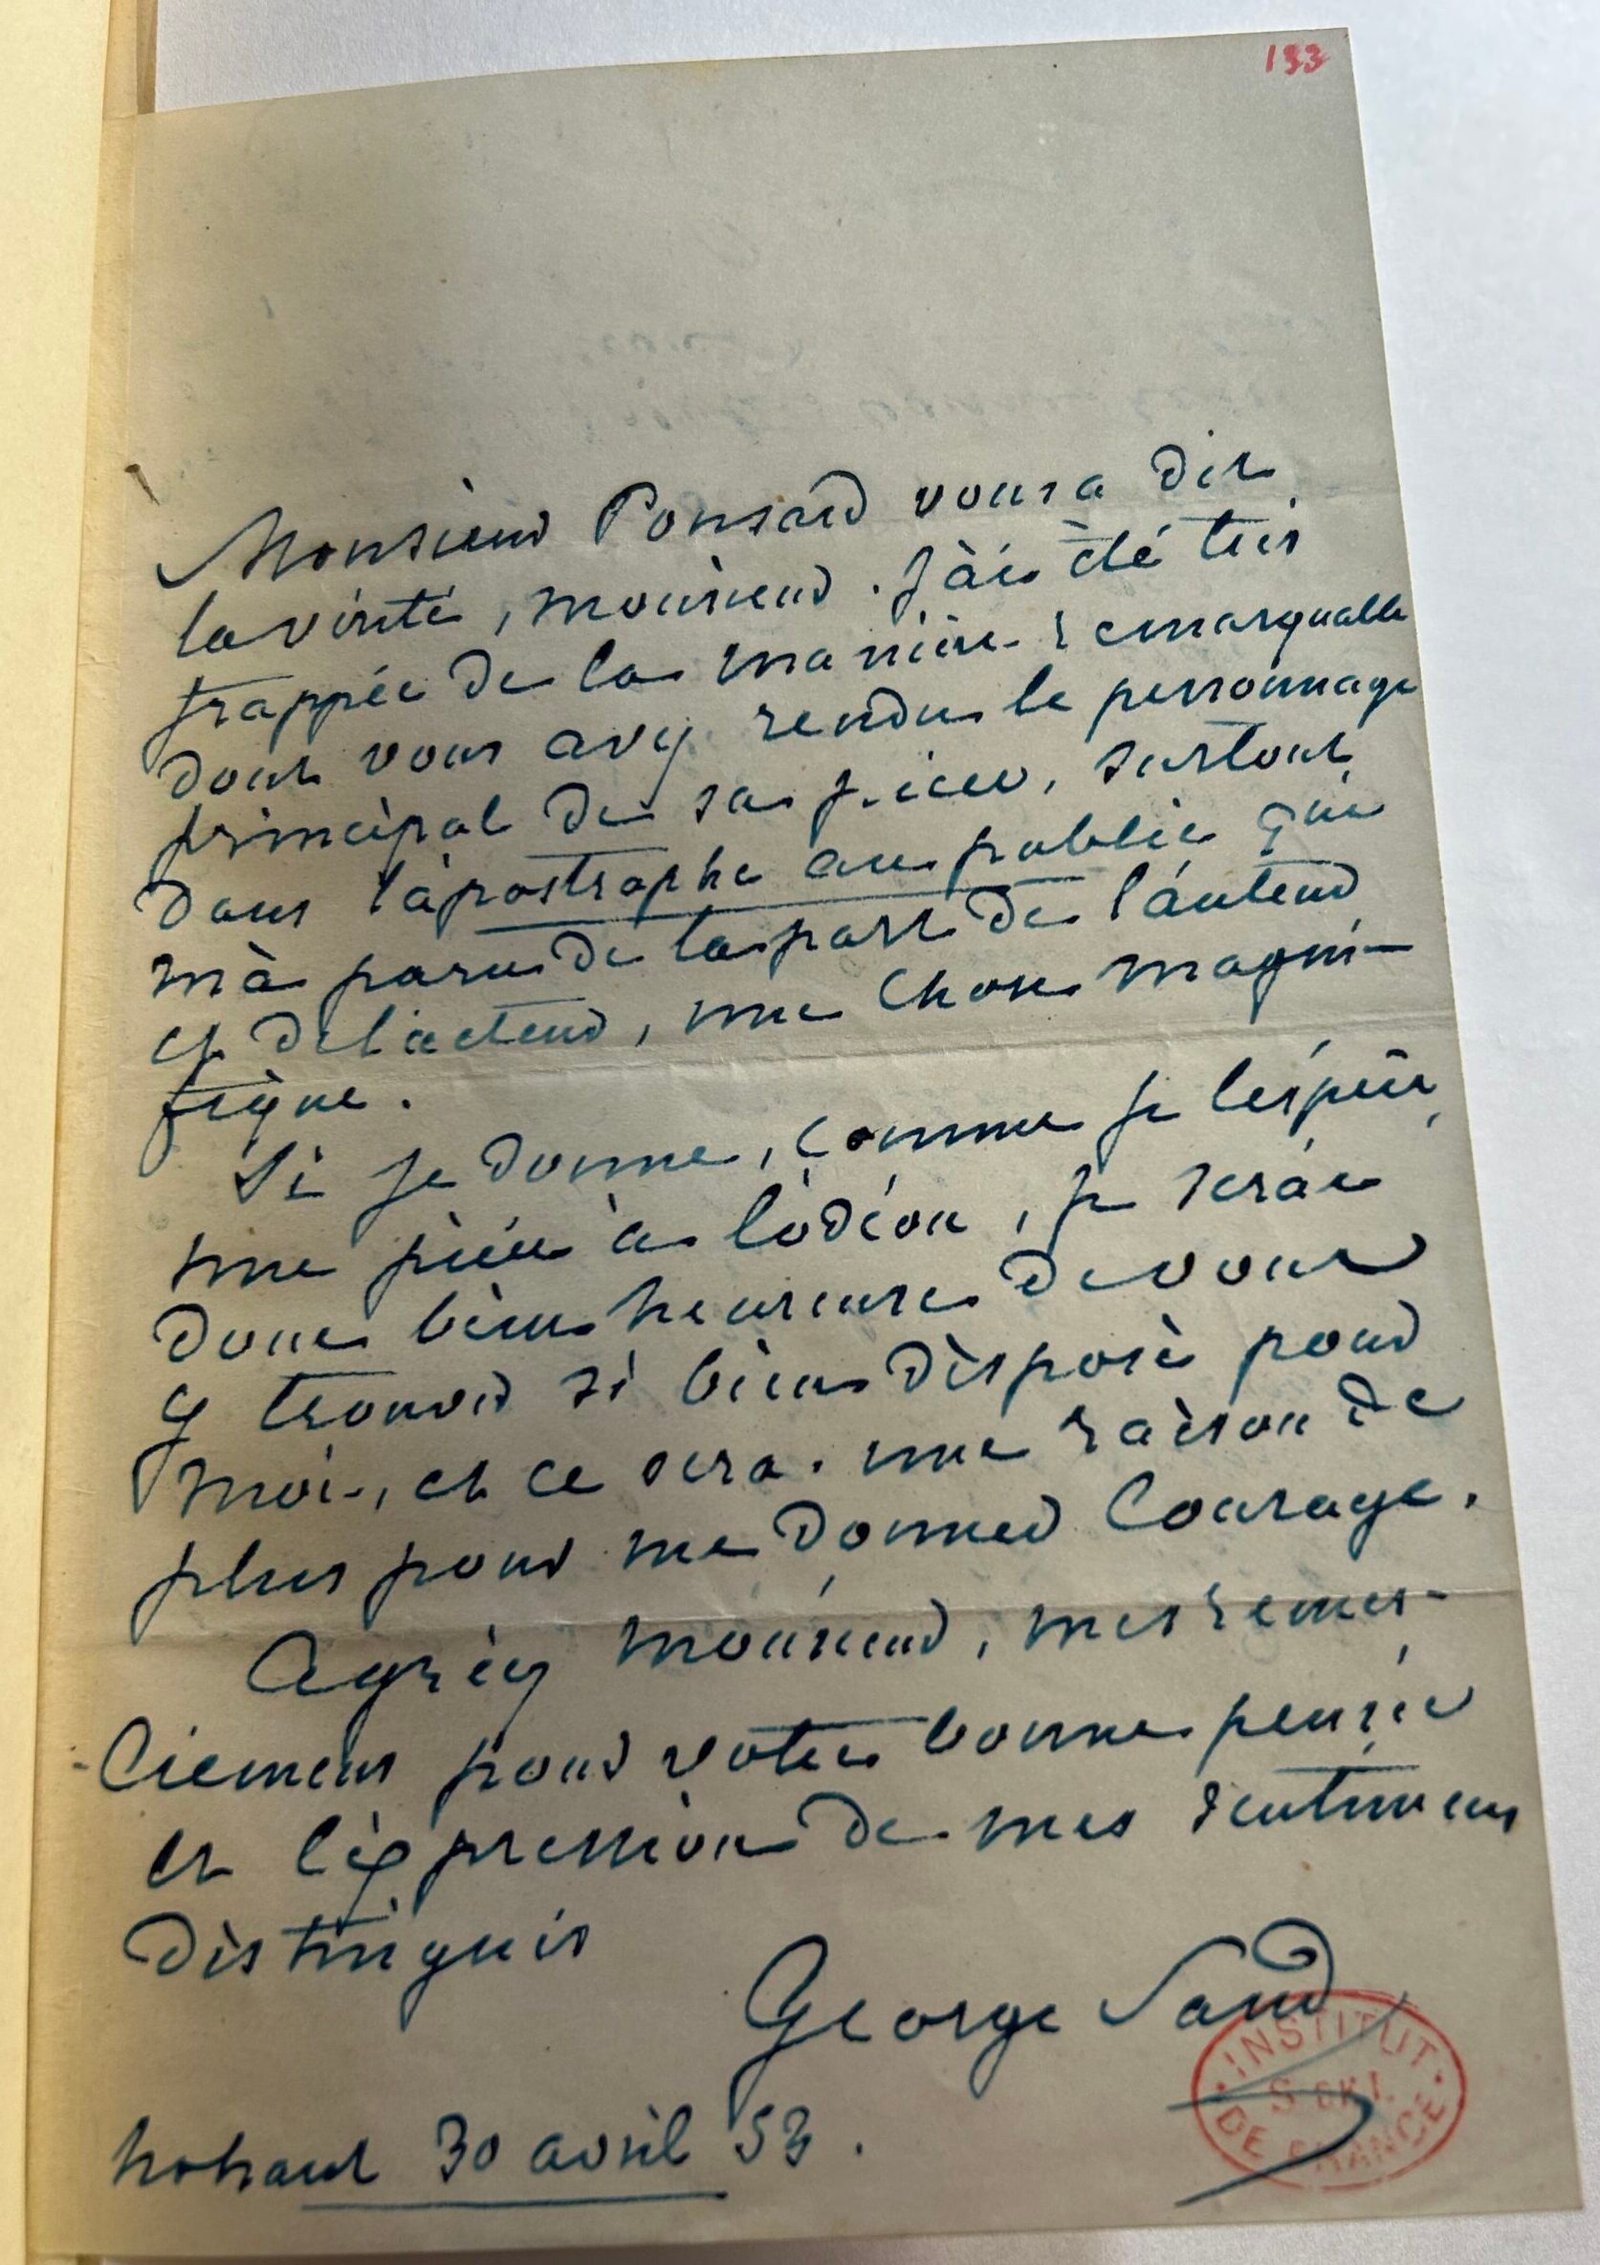 133
Monsieur Ponsard vous a dit
la vérité, monsieur. j'ai été très
frappée de la manière remarquable
dont vous avez rendu le personnage
principal de sa pièce, surtout
dans l'apostrophe au public qui
m'a paru de la part de l'auteur
et de l'acteur, une chose magni-
fique.
Si je donne, comme je l'espère,
une pièce à l'odéon, je serai
donc bien heureuse de vous
y trouver si bien disposé pour
moi, et ce sera une raison de
plus pour me donner courage.
Agréez monsieur, mes remer-
-ciemens pour votre bonne pensée
et l'expression de mes sentimens
distingués
George Sand
INSTITUT
DE FRANCE
nohant 30 avril 53.